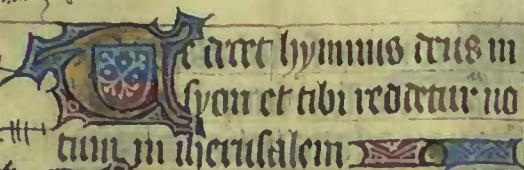 Te decet hymnus deus in
syon et tibi reddetur uo
tum in iherusalem